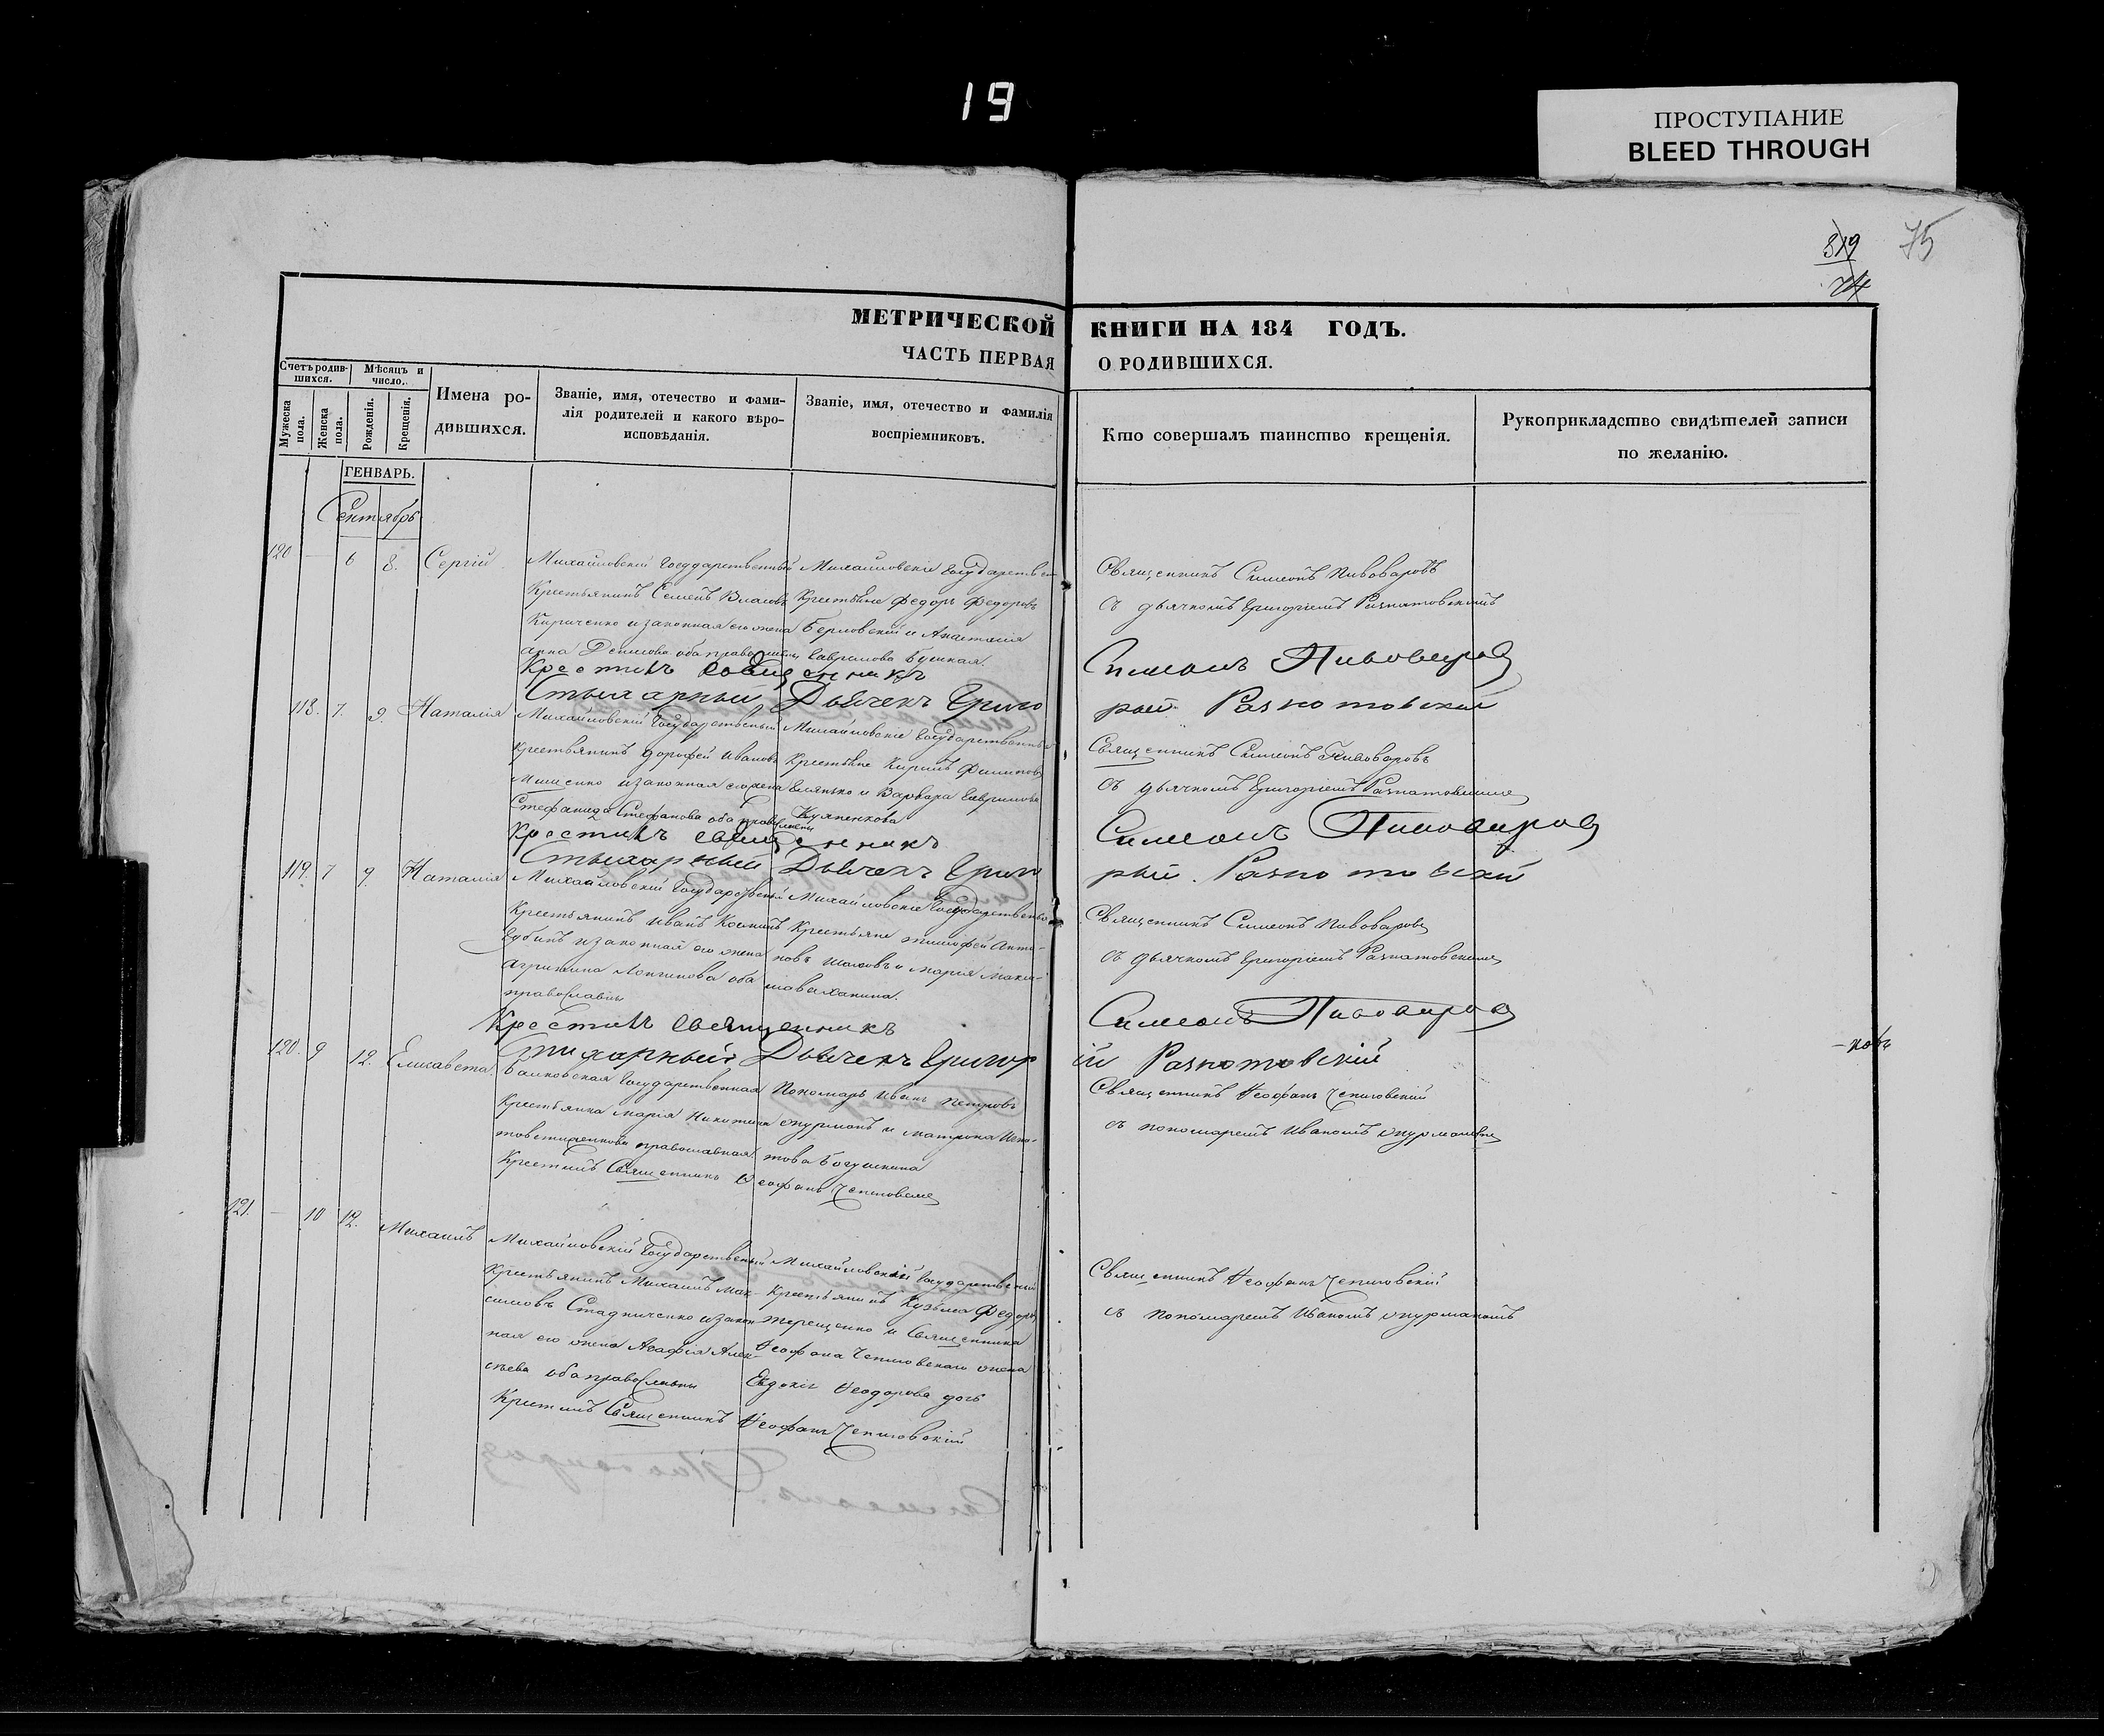 19
ПРОСТУПАНИЕ
BLEED THROUGH
819
74
75
МЕТРИЧЕСКОЙ КНИГИ НА 184 ГОДЪ.
ЧАСТЬ ПЕРВАЯ О РОДИВШИХСЯ.
Счетъ родившихся.
Мѣсяцъ и число.
Мужеска пола.
Женска пола.
Рожденія.
Крещенія.
Имена родившихся.
Званіе, имя, отечество и фамилія родителей и какого вѣроисповѣданія.
Званіе, имя, отечество и фамилія воспріемниковъ.
Кто совершалъ таинство крещенія.
Рукоприкладство свидѣтелей записи по желанію.
ГЕНВАРЬ.
Сентябрь
120 — 6 8. Сергій
Михайловскій Государственный
Крестьянинъ Семенъ Власовъ
Кириченко и законная его жена
Анна Денисова оба православны
Михайловскіе Государствен
Крестьяне Федоръ Федоровъ
Берловскій и Анастасія
Гаврилова Буцкая.
Священникъ Симеонъ Пивоваровъ
съ дьячкомъ Григоріемъ Разнатовскимъ
Крестилъ священникъ Симеонъ Пивоваров
Стихарный Дьячекъ Григо рый Разнотовский
118. 7. 9. Наталія
Михайловскій Государственый
Крестьянинъ Дорофей Ивановъ
Мищенко и законная его жена
Стефанида Стефанова оба православны
Михайловскіе Государственные
Крестьяне Кирилъ Филиповъ
и Варвара Гаврилова
Священникъ Симеонъ Пивоваровъ
съ дьячкомъ Григоріемъ Разнатовскимъ
Крестилъ священникъ Симеонъ Пивоваров
Стихарный Дьячекъ Григо рый Разнотовский
119. 7 9. Наталія
Михайловскій Государственый
Крестьянинъ Иванъ Козминъ
Губинъ и законная его жена
Агрипина Лонгинова оба
православны
Михайловскіе Государственные
Крестьяне Тимофей Анто-
новъ Шаховъ и Марія
Священникъ Симеонъ Пивоваровъ
съ дьячкомъ Григоріемъ Разнатовскимъ
Крестилъ священникъ Симеонъ Пивоваров
Стихарный Дьячекъ Григор ій Разнотовскій
120. 9 12. Елисавета.
Государственная
Крестьянка Марія Никитина
православная
Пономарь Иванъ Петровъ
и Матрона
Священникъ Ѳеофанъ Чепиговскій
съ пономаремъ Иваномъ
Крестилъ Священникъ Ѳеофанъ Чепиговскій
121. — 10 12. Михаилъ
Михайловскій Государственый
Крестьянинъ Михаилъ Мак-
симовъ Стадниченко и закон
ная его жена Агафія Алек-
сѣева оба православны
Михайловскій Государственый
Крестьянинъ Кузьма Федоровъ
Терещенко и Священника
Ѳеофана Чепиговскаго жена
Евдокія Ѳеодорова дочь
Священникъ Ѳеофанъ Чепиговскій
съ пономаремъ Иваномъ
Крестилъ Священникъ Ѳеофанъ Чепиговскій